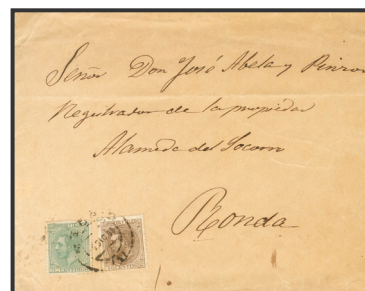 Señor Don José Abela y Pinzon
Registrador de la propiedad
Alameda del Socorro
Ronda